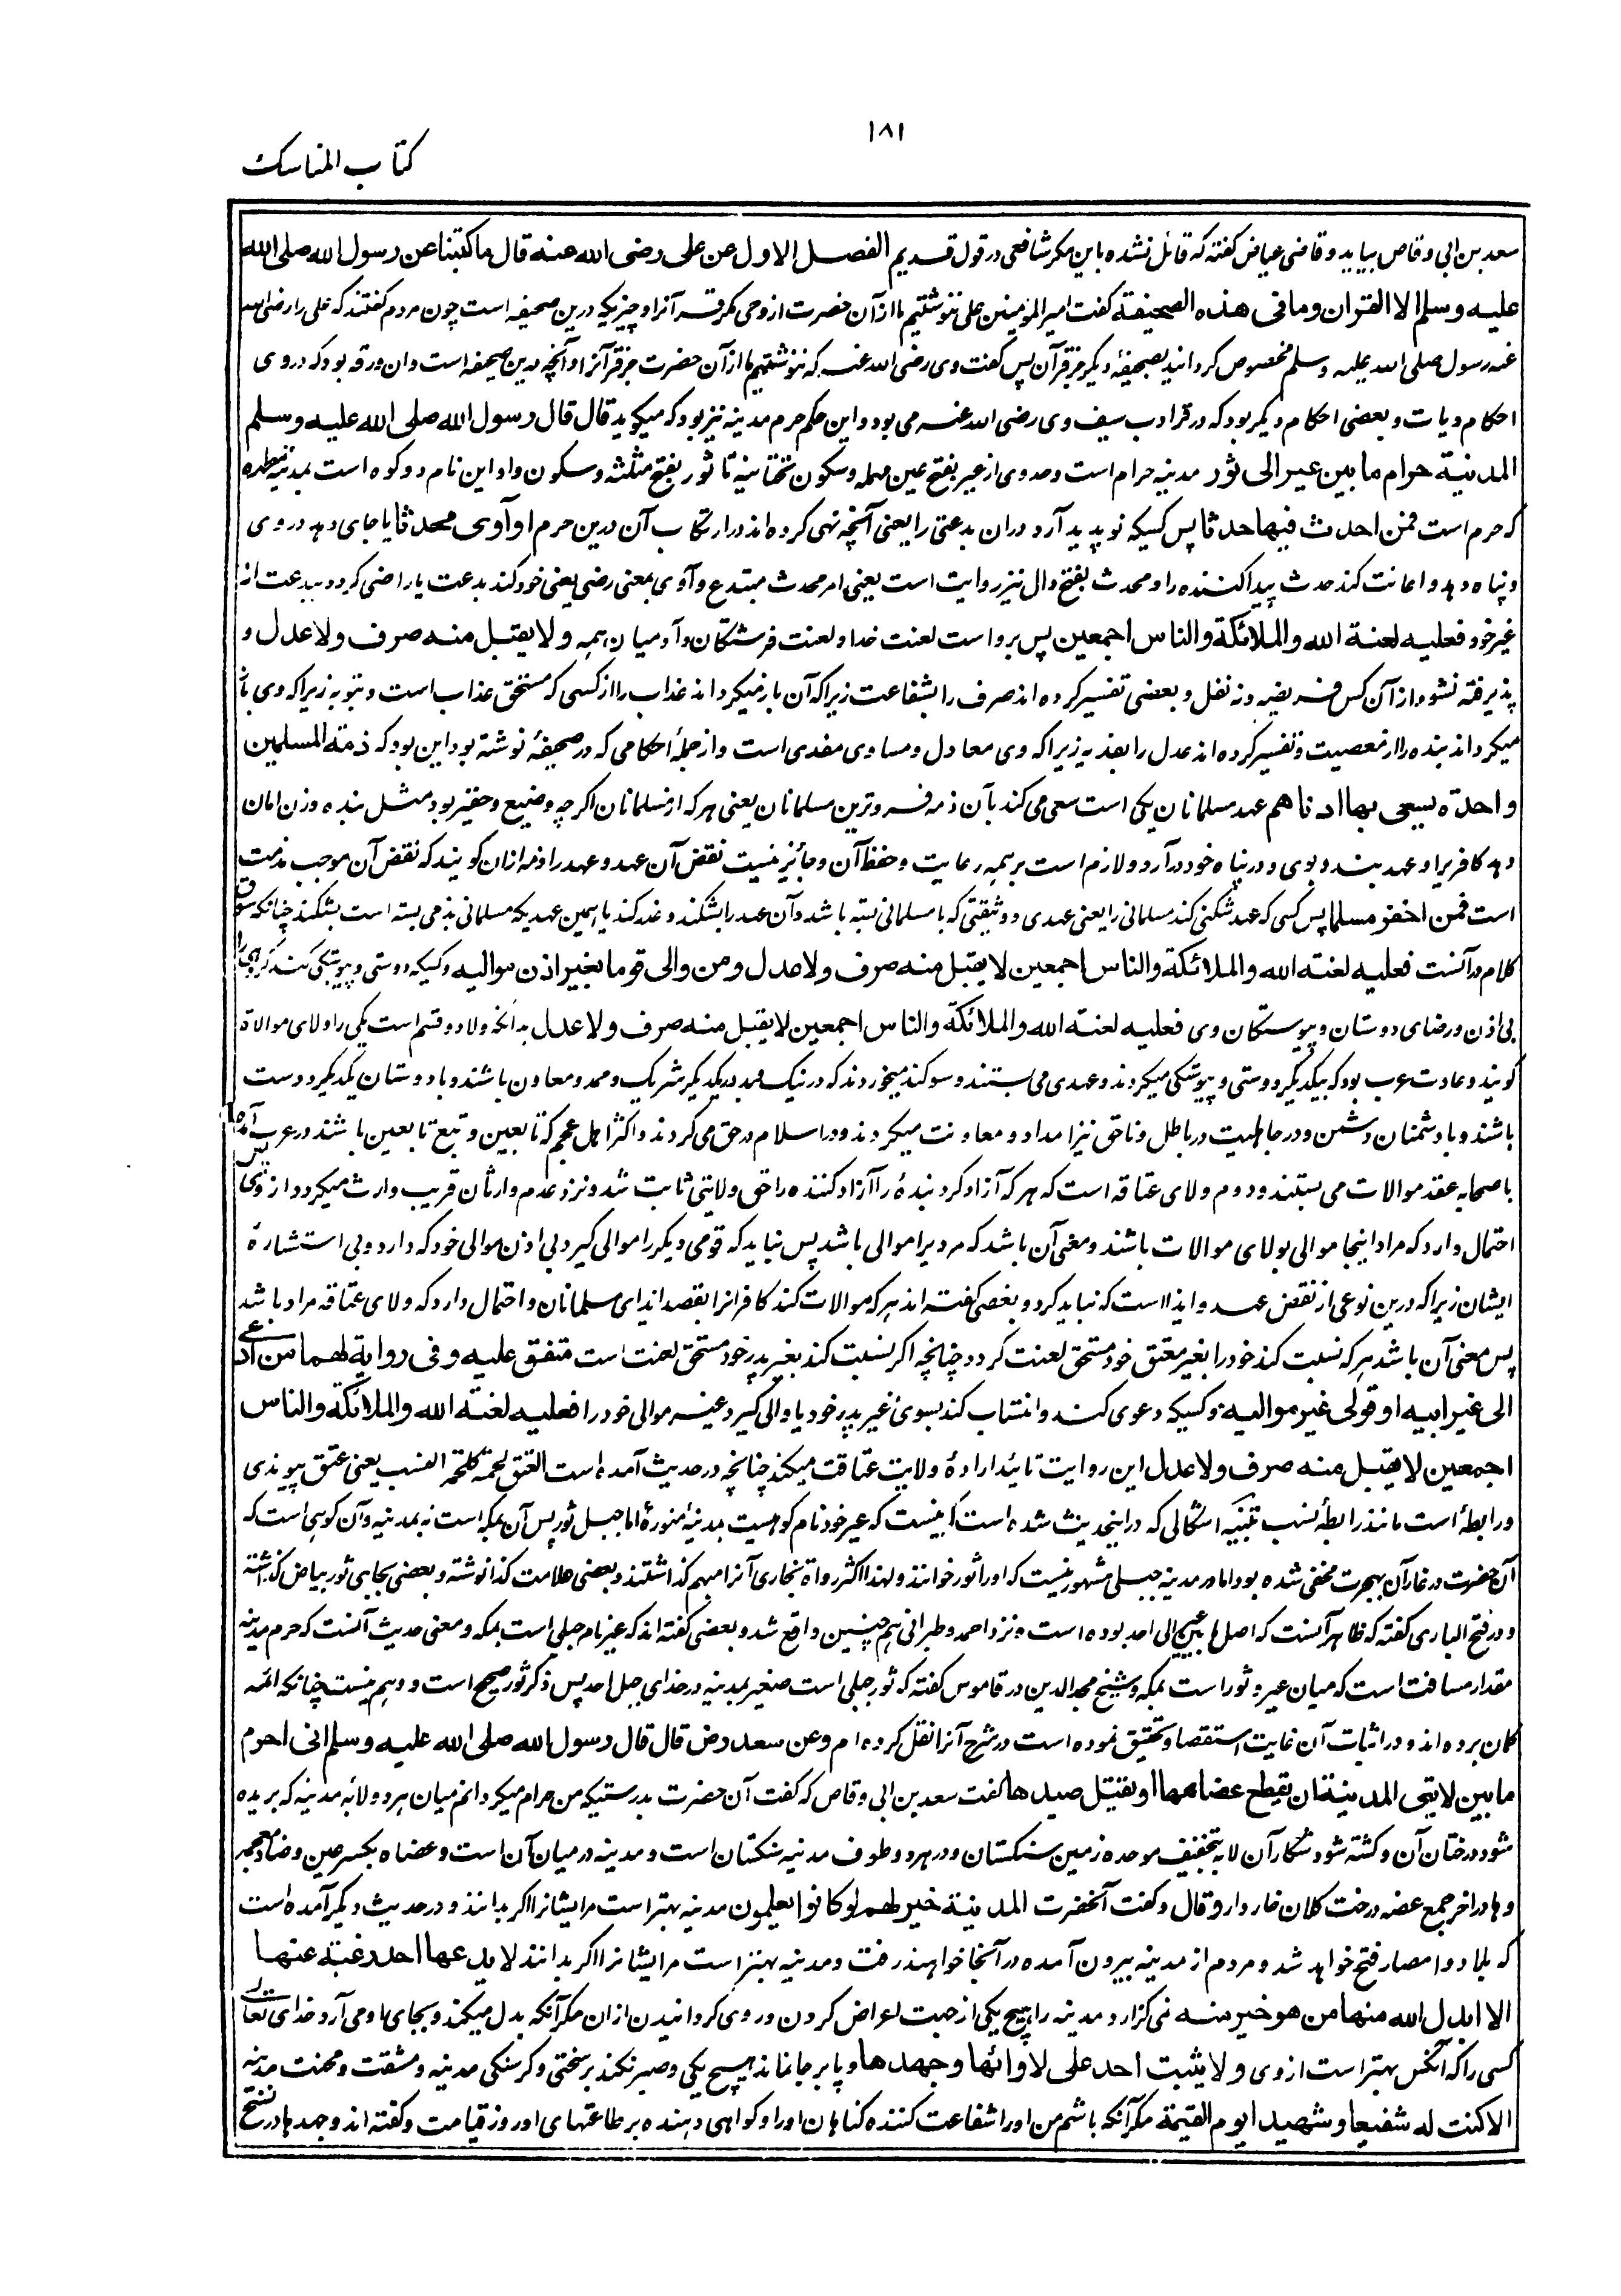 ۱۸۱
کتاب المناسک
سعد بن ابی وقاص بیاید و قاضی عیاض گفته که قائل نشده باین مگر شافعی در قول قدیم الفصل الاول عن علی رضی الله عنه قال ما کتبنا عن رسول الله صلی الله
علیه وسلم الا القران وما فی هذه الصحیفة گفت امیر المؤمنین علی ننوشتیم ما از آن حضرت از وحی مگر قرآنرا و چیزیکه درین صحیفه است چون مردم گفتند که علی را رضی الله
عنه رسول صلی الله علیه وسلم مخصوص گردانید بصحیفهٔ دیگر جز قرآن پس گفت وی رضی الله عنه که ننوشتیم ما از آن حضرت جز قرآنرا و آنچه درین صحیفه است و ان ورقه بود که در وی
احکام دیات و بعضی احکام دیگر بود که در قراب سیف وی رضی الله عنه می بود و این حکم حرم مدینه نیز بود که میگوید قال قال رسول الله صلی الله علیه وسلم
المدینة حرام ما بین عیر الی ثور مدینه حرام است و حد وی از عیر بفتح عین مهمله و سکون تحتانیه تا ثور بفتح مثلثه و سکون واو این نام دو کوه است بمدینه مطهره
که حرم است فمن احدث فیها حدثا پس کسیکه نو پدید آرد دران بدعتی را یعنی آنچه نهی کرده اند در ارتکاب آن درین حرم او آوی محدثا یا جای دهد در وی
و پناه دهد و اعانت کند حدث پیدا کننده را و محدث بفتح دال نیز روایت است یعنی امر محدث مبتدع و آوی بمعنی رضی یعنی خود کند بدعت یا راضی گردد ببدعت از
غیر خود فعلیه لعنة الله والملائکة والناس اجمعین پس بر واست لعنت خدا و لعنت فرشتگان و آدمیان همه ولا یقبل منه صرف ولا عدل و
پذیرفته نشود از آن کس فریضه و نه نفل و بعضی تفسیر کرده اند صرف را بشفاعت زیرا که آن باز میگرداند عذاب را از کسی که مستحق عذاب است و بتوبه زیرا که وی باز
میگرداند بنده را از معصیت و تفسیر کرده اند عدل را بفدیه زیرا که وی معادل و مساوی مفدی است و از جملهٔ احکامی که در صحیفهٔ نوشته بود این بود که ذمة المسلمین
واحدة یسعی بها ادناهم عهد مسلمانان یکی است سعی می کند بآن ذمه فروترین مسلمانان یعنی هر که از مسلمانان اگر چه وضیع و حقیر بود مثل بنده و زن امان
دهد کافریرا و عهد بندد بوی و در پناه خود در آرد و لازم است بر همه رعایت و حفظ آن و جائز نیست نقض آن عهد و عهد را ذمه ازان گویند که نقض آن موجب مذمت
است فمن اخفر مسلما پس کسی که عهد شکنی کند مسلمانی را یعنی عهدی و وثیقتی که با مسلمانی بسته باشد و آن عهد را بشکند و غدر کند یا همین عهدیکه مسلمانی بذمی بسته است بشکند چنانکه سوق
کلام در آنست فعلیه لعنة الله والملائکة والناس اجمعین لا یقبل منه صرف ولا عدل ومن والی قوما بغیر اذن موالیه و کسیکه دوستی و پیوستگی کند گروهی را
بی اذن و رضای دوستان و پیوستگان وی فعلیه لعنة الله والملائکة والناس اجمعین لا یقبل منه صرف ولا عدل بدانکه ولا دو قسم است یکی را ولای موالاة
گویند و عادت عرب بود که بیکدیگر دوستی و پیوستگی میکردند و عهدی می بستند و سوگند میخوردند که در نیک و بد یکدیگر شریک و ممد و معاون باشند و با دوستان یکدیگر دوست
باشند و با دشمنان دشمن و در جاهلیت در باطل و ناحق نیز امداد و معاونت میکردند و در اسلام در حق می کردند و اکثر اهل عجم که تابعین و تبع تابعین باشند در عرب آمده
با صحابه عقد موالات می بستند و دوم ولای عتاقه است که هر که آزاد کرد بندهٔ را آزاد کننده را حق ولایتی ثابت شد و نزد عدم وارثان قریب وارث میگردد از وی پس اینجا
احتمال دارد که مراد اینجا موالی بولای موالات باشند و معنی آن باشد که مردیرا موالی باشد پس نباید که قومی دیگر را موالی گیرد بی اذن موالی خود که دارد و بی استشارهٔ
ایشان زیرا که درین نوعی از نقض عهد و ایذا است که نباید کرد و بعضی گفته اند هر که موالات کند کافرانرا بقصد ایذای مسلمانان و احتمال دارد که ولای عتاقه مراد باشد
پس معنی آن باشد هر که نسبت کند خود را بغیر معتق خود مستحق لعنت گردد چنانچه اگر نسبت کند بغیر پدر خود مستحق لعنت است متفق علیه وفی روایة لهما من ادعی
الی غیر ابیه او تولی غیر موالیه و کسیکه دعوی کند و انتساب کند بسوی غیر پدر خود یا والی گیرد غیر موالی خود را فعلیه لعنة الله والملائکة والناس
اجمعین لا یقبل منه صرف ولا عدل این روایت تائید ارادهٔ ولایت عتاقت میکند چنانچه در حدیث آمده است العتق لحمة کلحمة النسب یعنی عتق پیوندی
و رابطهٔ است مانند رابطهٔ نسب تنبیه اشکالی که در اینحدیث شده است اینست که عیر خود نام کوهیست بمدینهٔ منوره اما جبل ثور پس آن بمکه است نه بمدینه و آن کوهی است که
آن حضرت در غار آن بهجرت مخفی شده بود اما در مدینه جبلی مشهور نیست که اورا ثور خوانند و لهذا اکثر رواة بخاری آنرا مبهم گذاشتند و بعضی علامت کذا نوشته و بعضی بجای ثور بیاض گذاشته
و در فتح الباری گفته که ظاهر آنست که اصل ما بین عیر الی احد بوده است و نزد احمد و طبرانی هم چنین واقع شد و بعضی گفته اند که عیر نام جبلی است بمکه و معنی حدیث آنست که حرم مدینه
مقدار مسافت است که میان عیر و ثور است بمکه و شیخ مجد الدین در قاموس گفته که ثور جبلی است صغیر بمدینه در حذای جبل احد پس ذکر ثور صحیح است و وهم نیست چنانکه ائمه
گمان برده اند و در اثبات آن غایت استقصا و تحقیق نموده است در شرح آنرا نقل کرده ام وعن سعد رض قال قال رسول الله صلی الله علیه وسلم انی احرم
ما بین لابتی المدینة ان یقطع عضاهها او یقتل صیدها گفت سعد بن ابی وقاص که گفت آن حضرت بدرستیکه من حرام میگردانم میان هر دو لابهٔ مدینه که بریده
شود درختان آن و کشته شود شکار آن لابه بتخفیف موحده زمین سنگستان و در هر دو طرف مدینه سنگستان است و مدینه در میان آن است و عضاه بکسر عین و ضاد معجمه
و ها در اخر جمع عضه درخت کلان خاردار وقال و گفت آنحضرت المدینة خیر لهم لو کانوا یعلمون مدینه بهتر است مر ایشانرا اگر بدانند و در حدیث دیگر آمده است
که بلاد و امصار فتح خواهد شد و مردم از مدینه بیرون آمده در آنجا خواهند رفت و مدینه بهتر است مر ایشانرا اگر بدانند لا یدعها احد رغبة عنها
الا ابدل الله منها من هو خیر منه نمی گزارد مدینه را هیچ یکی از جهت اعراض کردن و روی گردانیدن ازان مگر آنکه بدل میکند و بجای او می آرد خدای تعالی
کسی را که آنکس بهتر است از وی ولا یثبت احد علی لاوائها وجهدها و پا بر جا نماند هیچ یکی و صبر نکند بر سختی و گرسنگی مدینه و مشقت و محنت مدینه
الا کنت له شفیعا وشهیدا یوم القیمة مگر آنکه باشم من اورا شفاعت کننده گناهان اورا و گواهی دهنده بر طاعتهای او روز قیامت و گفته اند وجهدها در نسخ